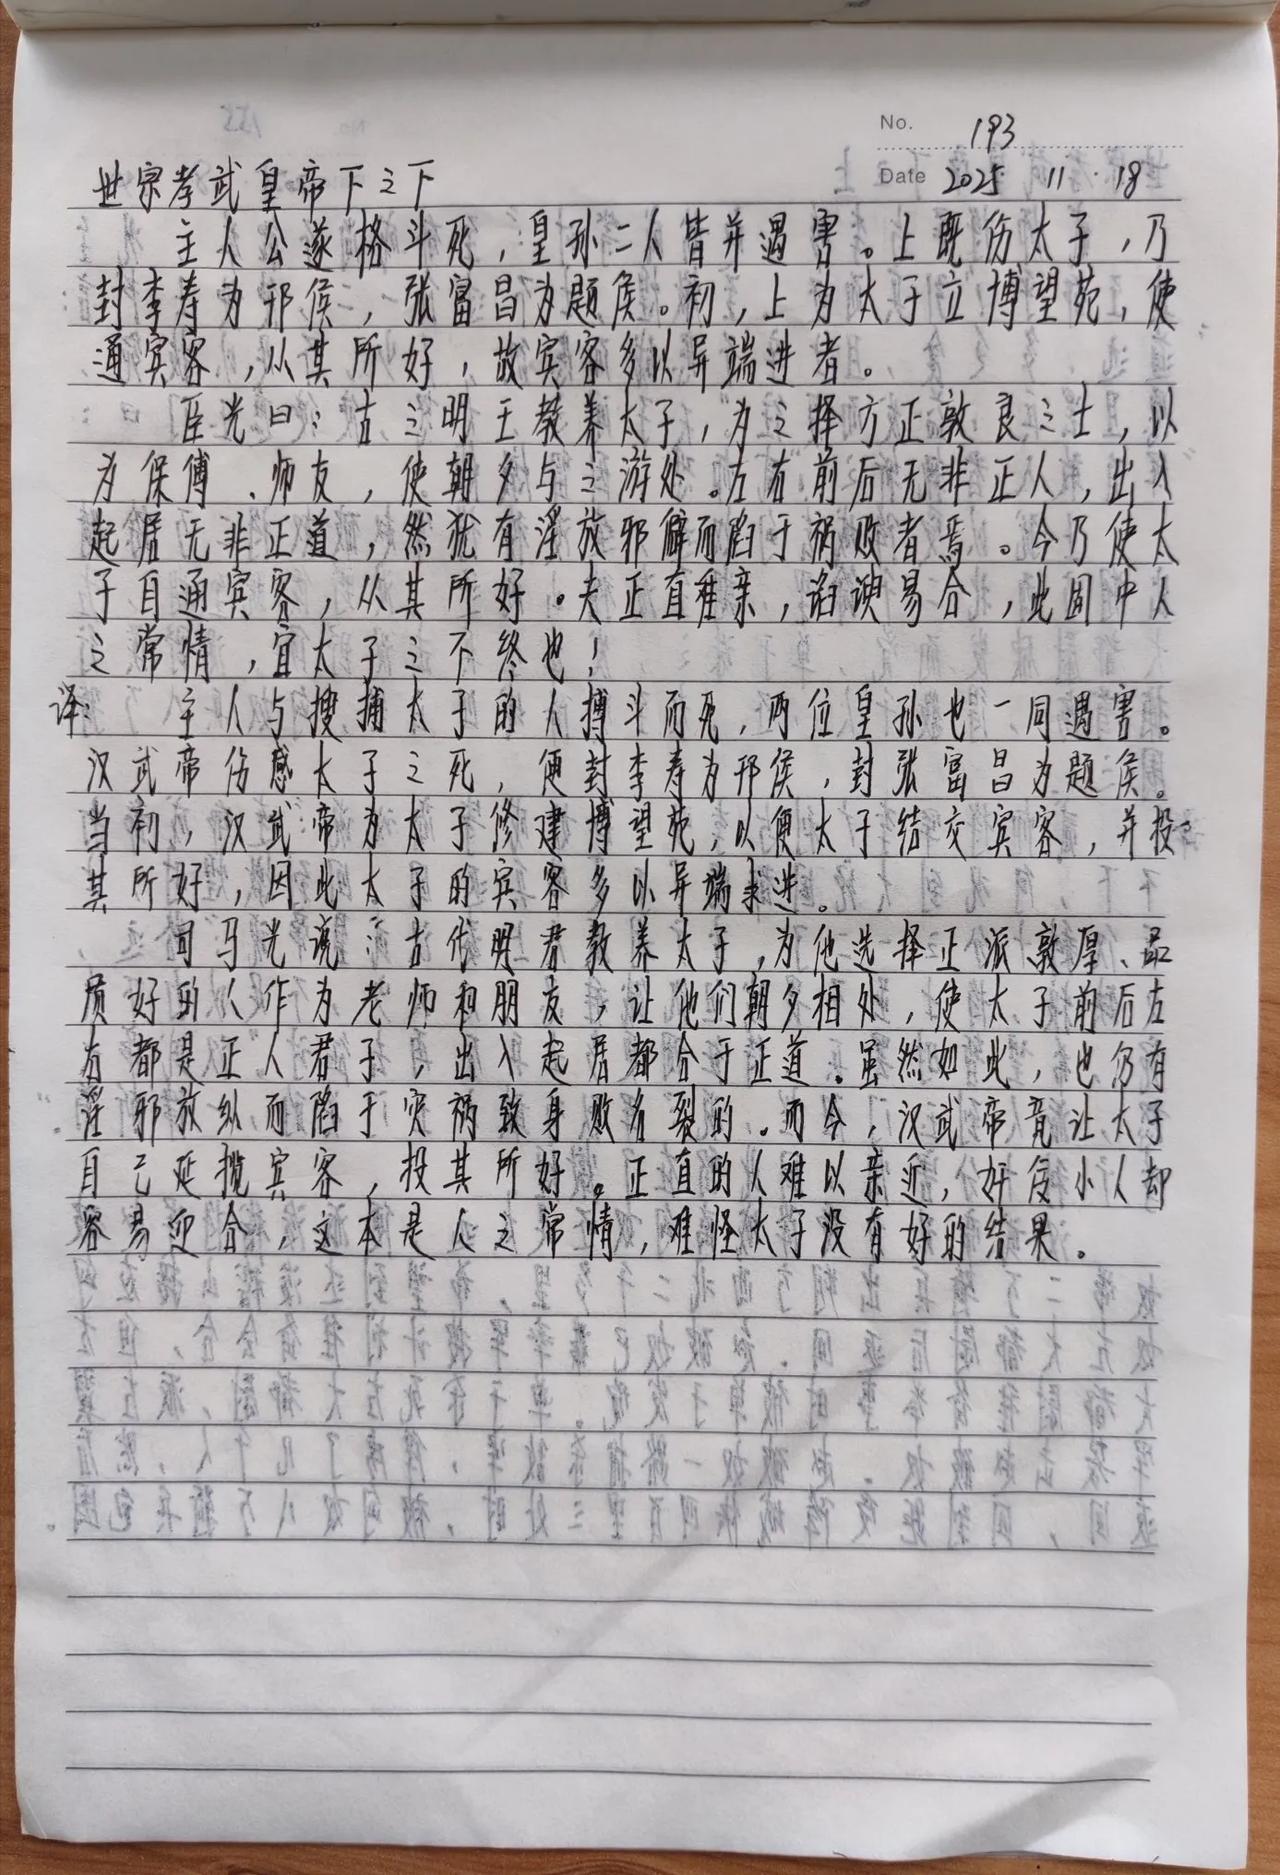 No. 193
Date 2025 11·18
世宗孝武皇帝下之下
主人公遂格斗死，皇孙二人皆并遇害。上既伤太子，乃
封李寿为邘侯，张富昌为题侯。初，上为太子立博望苑，使
通宾客，从其所好，故宾客多以异端进者。
臣光曰：古之明王教养太子，为之择方正敦良之士，以
为保傅、师友，使朝夕与之游处。左右前后无非正人，出入
起居无非正道，然犹有淫放邪僻而陷于祸败者焉。今乃使太
子自通宾客，从其所好。夫正直难亲，谄谀易合，此固中人
之常情，宜太子之不终也！
译：主人与搜捕太子的人搏斗而死，两位皇孙也一同遇害。
汉武帝伤感太子之死，便封李寿为邘侯，封张富昌为题侯。
当初，汉武帝为太子修建博望苑，以便太子结交宾客，并投
其所好，因此太子的宾客多以异端求进。
司马光说：古代明君教养太子，为他选择正派敦厚、品
质好的人作为老师和朋友，让他们朝夕相处，使太子前后左
右都是正人君子，出入起居都合于正道。虽然如此，也仍有
淫邪放纵而陷于灾祸致身败名裂的。而今，汉武帝竟让太子
自己延揽宾客，投其所好。正直的人难以亲近，奸佞小人却
容易迎合，这本是人之常情，难怪太子没有好的结果。